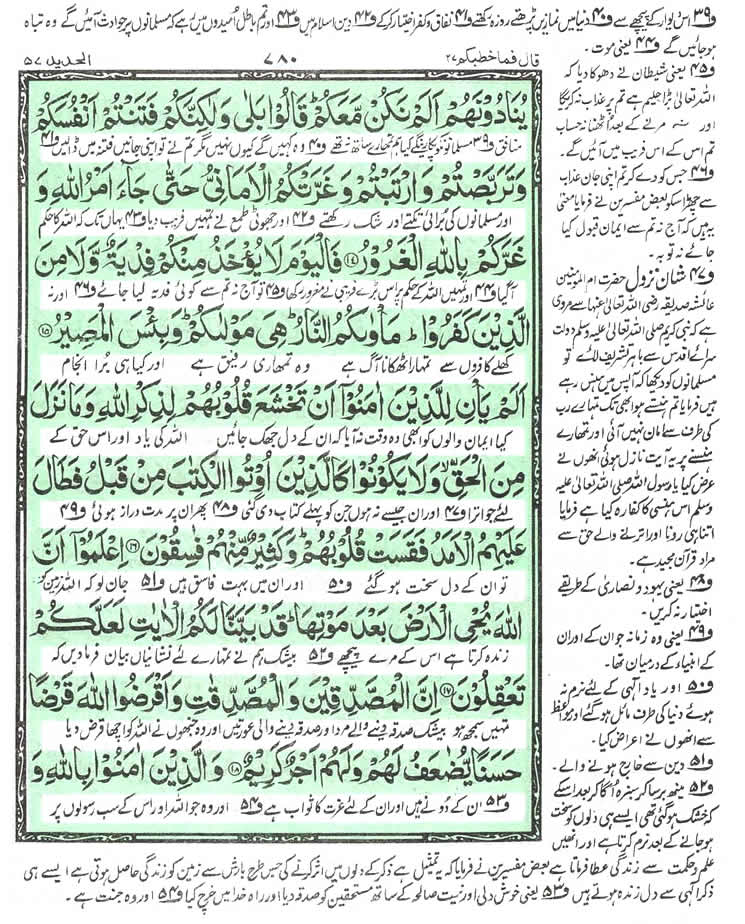 و۳۹ اس دیوار کے پیچھے سے و۴۰ دنیا میں نمازیں پڑھتے روزہ رکھتے و۴۱ نفاق و کفر اختیار کرکے و۴۲ دین اسلام میں و۴۳ اور تم باطل امیدوں میں رہے کہ مسلمانوں پر حوادث آئیں گے وہ تباہ
ہوجائیں گے و۴۴ یعنی موت۔
قال فما خطبکم ۲۷
۷۸۰
الحدید ۵۷
یُنَادُوْنَهُمْ اَلَمْ نَكُنْ مَّعَكُمْ قَالُوْا بَلٰی وَلٰكِنَّكُمْ فَتَنْتُمْ اَنْفُسَكُمْ
منافق و۳۹ مسلمانوں کو پکاریں گے کیا ہم تمہارے ساتھ نہ تھے و۴۰ وہ کہیں گے کیوں نہیں مگر تم نے تو اپنی جانیں فتنہ میں ڈالیں و۴۱
وَتَرَبَّصْتُمْ وَارْتَبْتُمْ وَغَرَّتْكُمُ الْاَمَانِیُّ حَتّٰی جَآءَ اَمْرُ اللّٰهِ وَ
اور مسلمانوں کی برائی تکتے اور شک رکھتے و۴۲ اور جھوٹی طمع نے تمہیں فریب دیا و۴۳ یہاں تک کہ اللہ کا حکم
غَرَّكُمْ بِاللّٰهِ الْغَرُوْرُ ۝۱۴ فَالْیَوْمَ لَا یُؤْخَذُ مِنْكُمْ فِدْیَةٌ وَّلَا مِنَ
آگیا و۴۴ اور تمہیں اللہ کے حکم پر اس بڑے فریبی نے مغرور رکھا و۴۵ تو آج نہ تم سے کوئی فدیہ لیا جائے و۴۶ اور نہ
الَّذِیْنَ كَفَرُوْا ؕ مَاْوٰىكُمُ النَّارُ ؕ هِیَ مَوْلٰىكُمْ ؕ وَبِئْسَ الْمَصِیْرُ ۝۱۵
کھلے کافروں سے تمہارا ٹھکانا آگ ہے وہ تمہاری رفیق ہے اور کیا ہی برا انجام
اَلَمْ یَاْنِ لِلَّذِیْنَ اٰمَنُوْۤا اَنْ تَخْشَعَ قُلُوْبُهُمْ لِذِكْرِ اللّٰهِ وَمَا نَزَلَ
کیا ایمان والوں کو ابھی وہ وقت نہ آیا کہ ان کے دل جھک جائیں اللہ کی یاد اور اس حق کے
مِنَ الْحَقِّ ۙ وَلَا یَكُوْنُوْا كَالَّذِیْنَ اُوْتُوا الْكِتٰبَ مِنْ قَبْلُ فَطَالَ
لئے جو اترا و۴۷ اور ان جیسے نہ ہوں جن کو پہلے کتاب دی گئی و۴۸ پھر ان پر مدت دراز ہوئی و۴۹
عَلَیْهِمُ الْاَمَدُ فَقَسَتْ قُلُوْبُهُمْ ؕ وَكَثِیْرٌ مِّنْهُمْ فٰسِقُوْنَ ۝۱۶ اِعْلَمُوْۤا اَنَّ
تو ان کے دل سخت ہوگئے و۵۰ اور ان میں بہت فاسق ہیں و۵۱ جان لو کہ اللہ زمین کو
اللّٰهَ یُحْیِ الْاَرْضَ بَعْدَ مَوْتِهَا ؕ قَدْ بَیَّنَّا لَكُمُ الْاٰیٰتِ لَعَلَّكُمْ
زندہ کرتا ہے اس کے مرے پیچھے و۵۲ بیشک ہم نے تمہارے لئے نشانیاں بیان فرمادیں کہ
تَعْقِلُوْنَ ۝۱۷ اِنَّ الْمُصَّدِّقِیْنَ وَالْمُصَّدِّقٰتِ وَاَقْرَضُوا اللّٰهَ قَرْضًا
تمہیں سمجھ ہو بیشک صدقہ دینے والے مرد اور صدقہ دینے والی عورتیں اور وہ جنہوں نے اللہ کو اچھا قرض دیا
حَسَنًا یُّضٰعَفُ لَهُمْ وَلَهُمْ اَجْرٌ كَرِیْمٌ ۝۱۸ وَالَّذِیْنَ اٰمَنُوْا بِاللّٰهِ وَ
و۵۳ ان کے دُونے ہیں اور ان کے لئے عزت کا ثواب ہے و۵۴ اور وہ جو اللہ اور اس کے سب رسولوں پر
و۴۵ یعنی شیطان نے دھوکا دیا کہ
اللہ تعالیٰ بڑا حلیم ہے تم پر عذاب نہ کریگا
اور نہ مرنے کے بعد اٹھنا نہ حساب
تم اس کے اس فریب میں آئے گے۔
و۴۶ جس کو دے کر تم اپنی جان عذاب
سے چھڑا سکو بعض مفسرین نے فرمایا معنی
یہ ہیں کہ آج نہ تم سے ایمان قبول کیا
جائے نہ توبہ۔
و۴۷ شان نزول حضرت ام المؤمنین
عائشہ صدیقہ رضی اللہ تعالیٰ عنہا سے مروی
ہے کہ نبی کریم صلی اللہ تعالیٰ علیہ وسلم دولت
سرائے اقدس سے باہر تشریف لائے تو
مسلمانوں کو دیکھا کہ آپس میں ہنس رہے
ہیں فرمایا تم ہنستے ہو ابھی تک تمہارے رب
کی طرف سے امان نہیں آئی اور تمہارے
ہنسنے پر یہ آیت نازل ہوئی انھوں نے
عرض کیا یا رسول اللہ صلی اللہ تعالیٰ علیہ
وسلم اس ہنسی کا کفارہ کیا ہے فرمایا
اتنا ہی رونا اور اترنے والے حق سے
مراد قرآن مجید ہے۔
و۴۸ یعنی یہود و نصاریٰ کے طریقے
اختیار نہ کریں۔
و۴۹ یعنی وہ زمانہ جو ان کے اور ان
کے انبیاء کے درمیان تھا۔
و۵۰ اور یاد الٰہی کے لئے نرم نہ
ہوئے دنیا کی طرف مائل ہوگئے اور مواعظ
سے انھوں نے اعراض کیا۔
و۵۱ دین سے خارج ہونے والے۔
و۵۲ مینھ برسا کر سبزہ اگا کر بعد اسکے
کہ خشک ہوگئی تھی ایسے ہی دلوں کو سخت
ہوجانے کے بعد نرم کرتا ہے اور انھیں
علم و حکمت سے زندگی عطا فرماتا ہے بعض مفسرین نے فرمایا کہ یہ تمثیل ہے ذکر کے دلوں میں اثر کرنے کی جس طرح بارش سے زمین کو زندگی حاصل ہوتی ہے ایسے ہی
ذکر الٰہی سے دل زندہ ہوتے ہیں و۵۳ یعنی خوش دلی اور نیت صالحہ کے ساتھ مستحقین کو صدقہ دیا اور راہ خدا میں خرچ کیا و۵۴ اور وہ جنت ہے۔